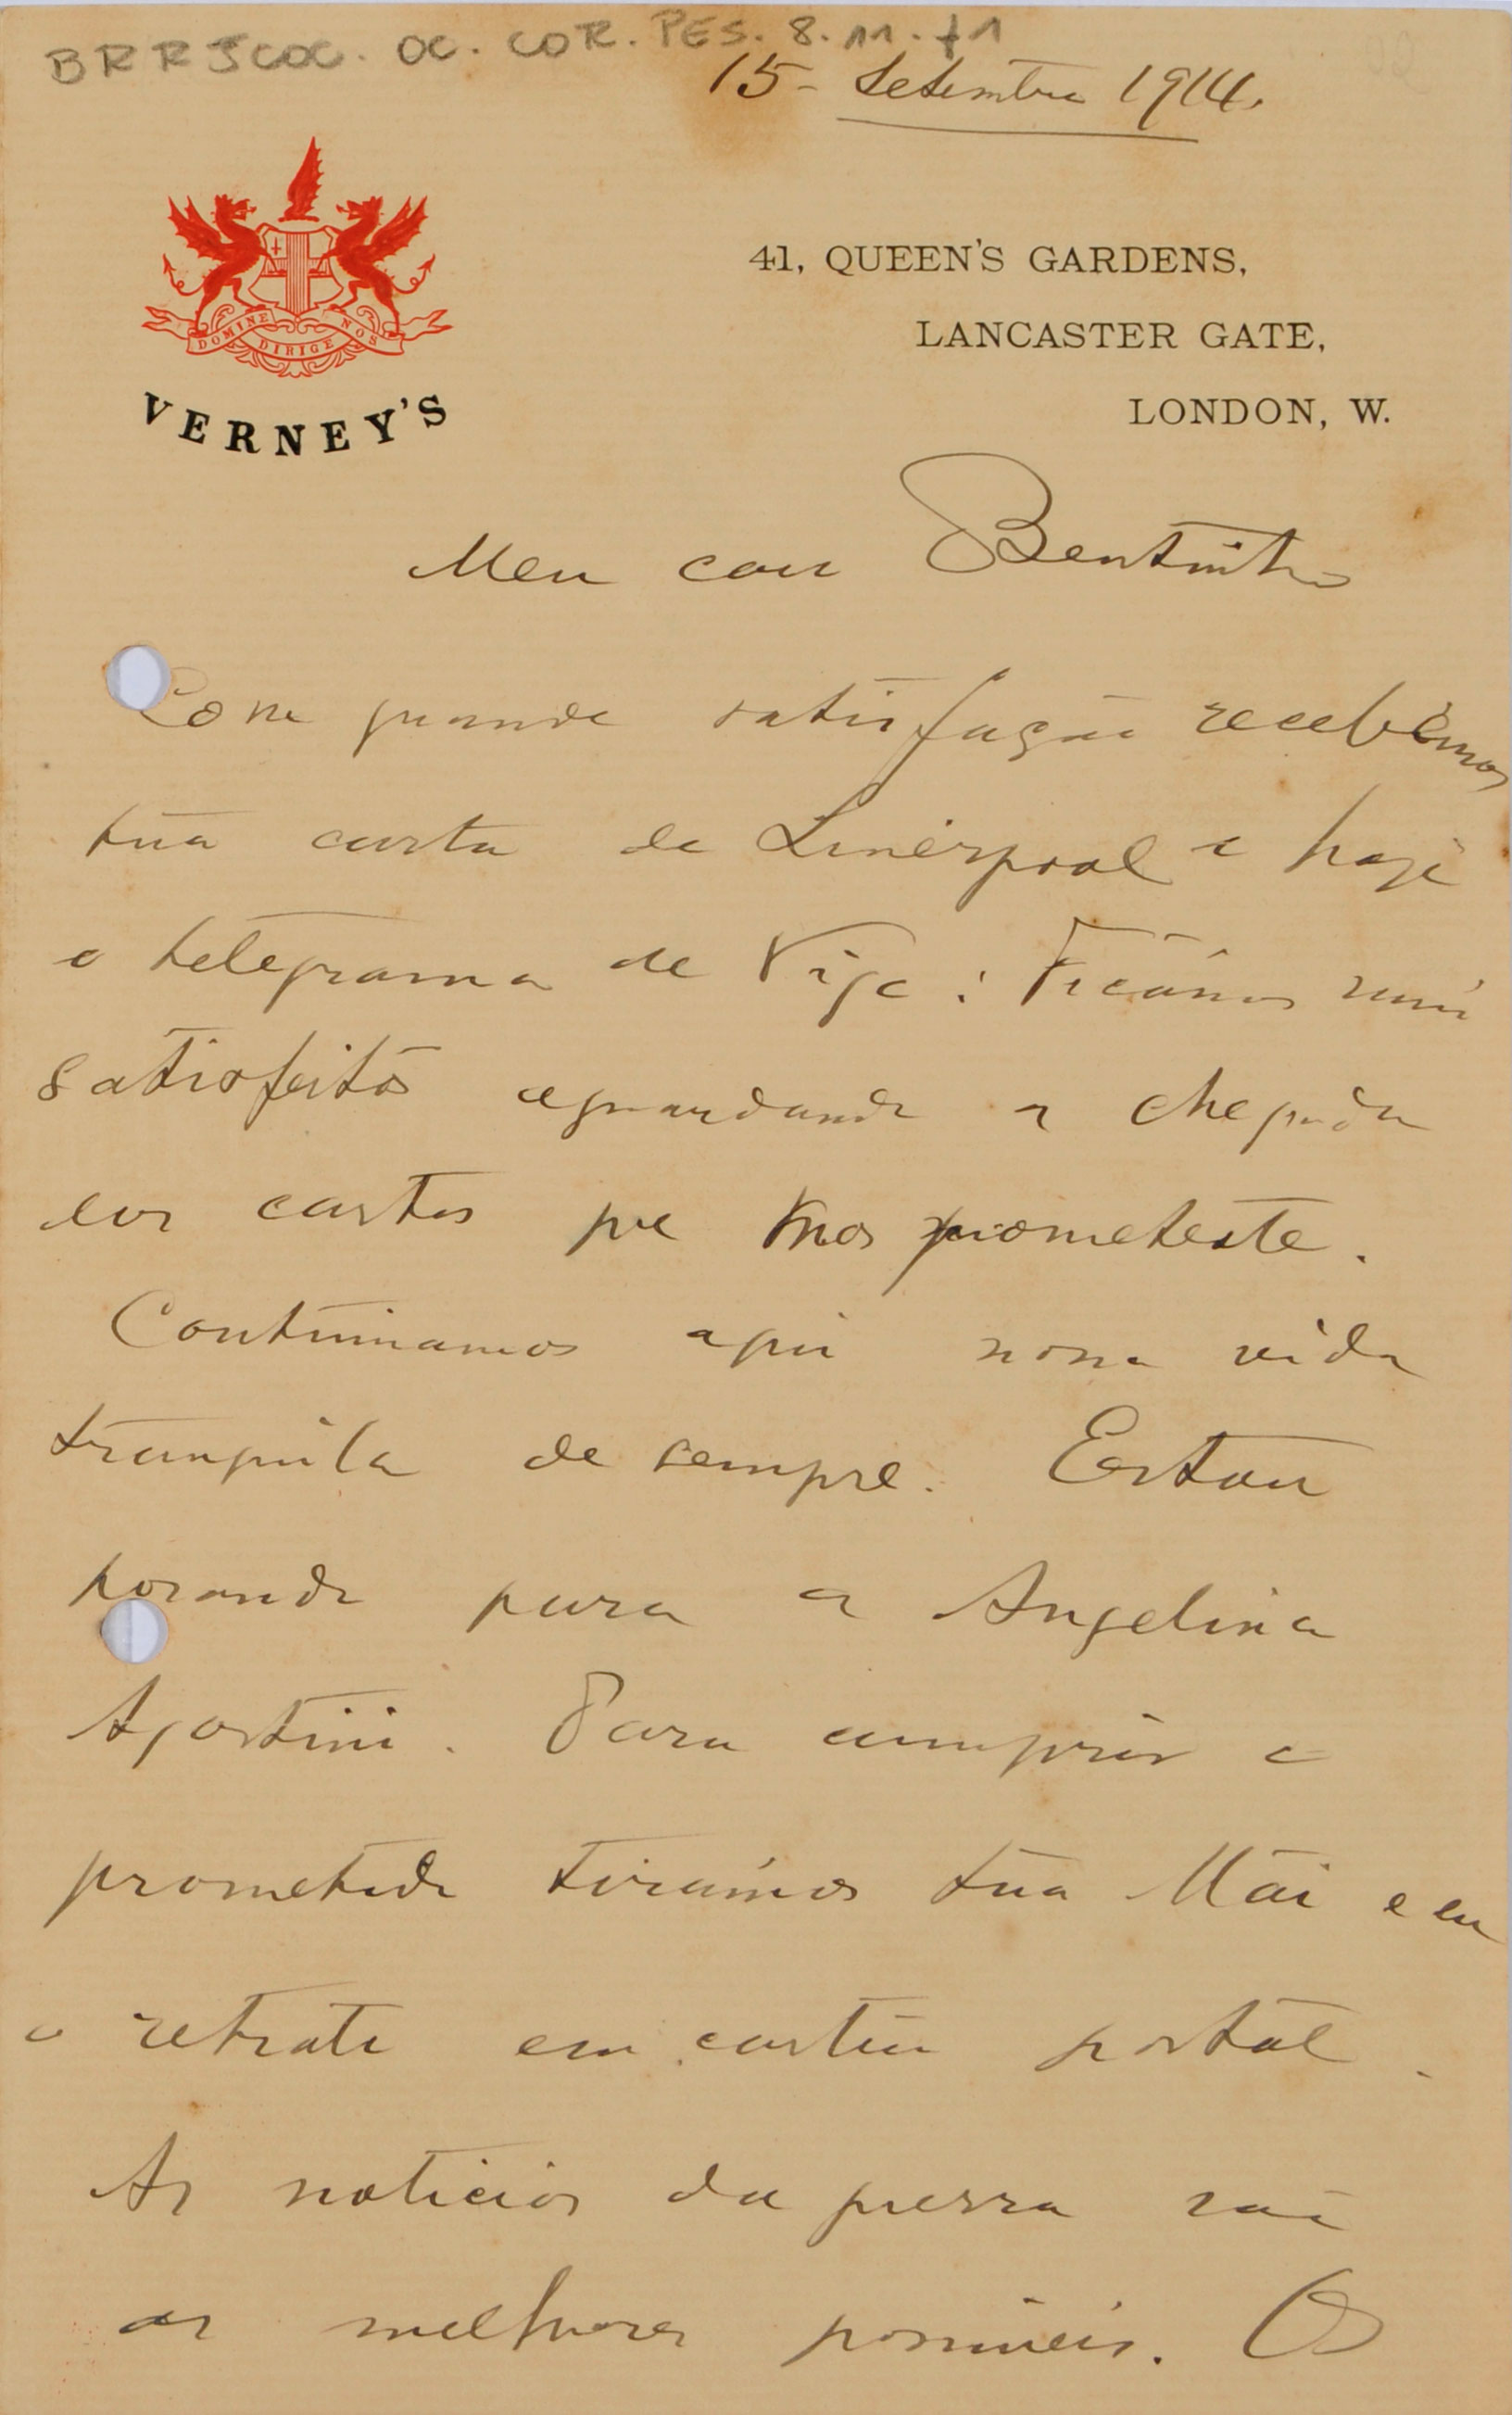 BR RJCOC. OC. COR. PES. 8. 11. 71
15 - Setembro 1914.
DOMINE DIRIGE NOS
VERNEY'S
41, QUEEN'S GARDENS,
LANCASTER GATE,
LONDON, W.
Meu caro Bentinho
Com grande satisfação recebemos
tua carta de Liverpool e hoje
o telegrama de Vigo: Ficámos mui
satisfeitos aguardando a chegada
das cartas que nos prometeste.
Continuamos aqui nossa vida
tranquila de sempre. Estou
posando para a Angelina
Agostini. Para cumprir o
prometido tirámos tua Mãi e eu
o retrato em cartão postal.
As noticias da guerra são
as melhores possiveis. Os